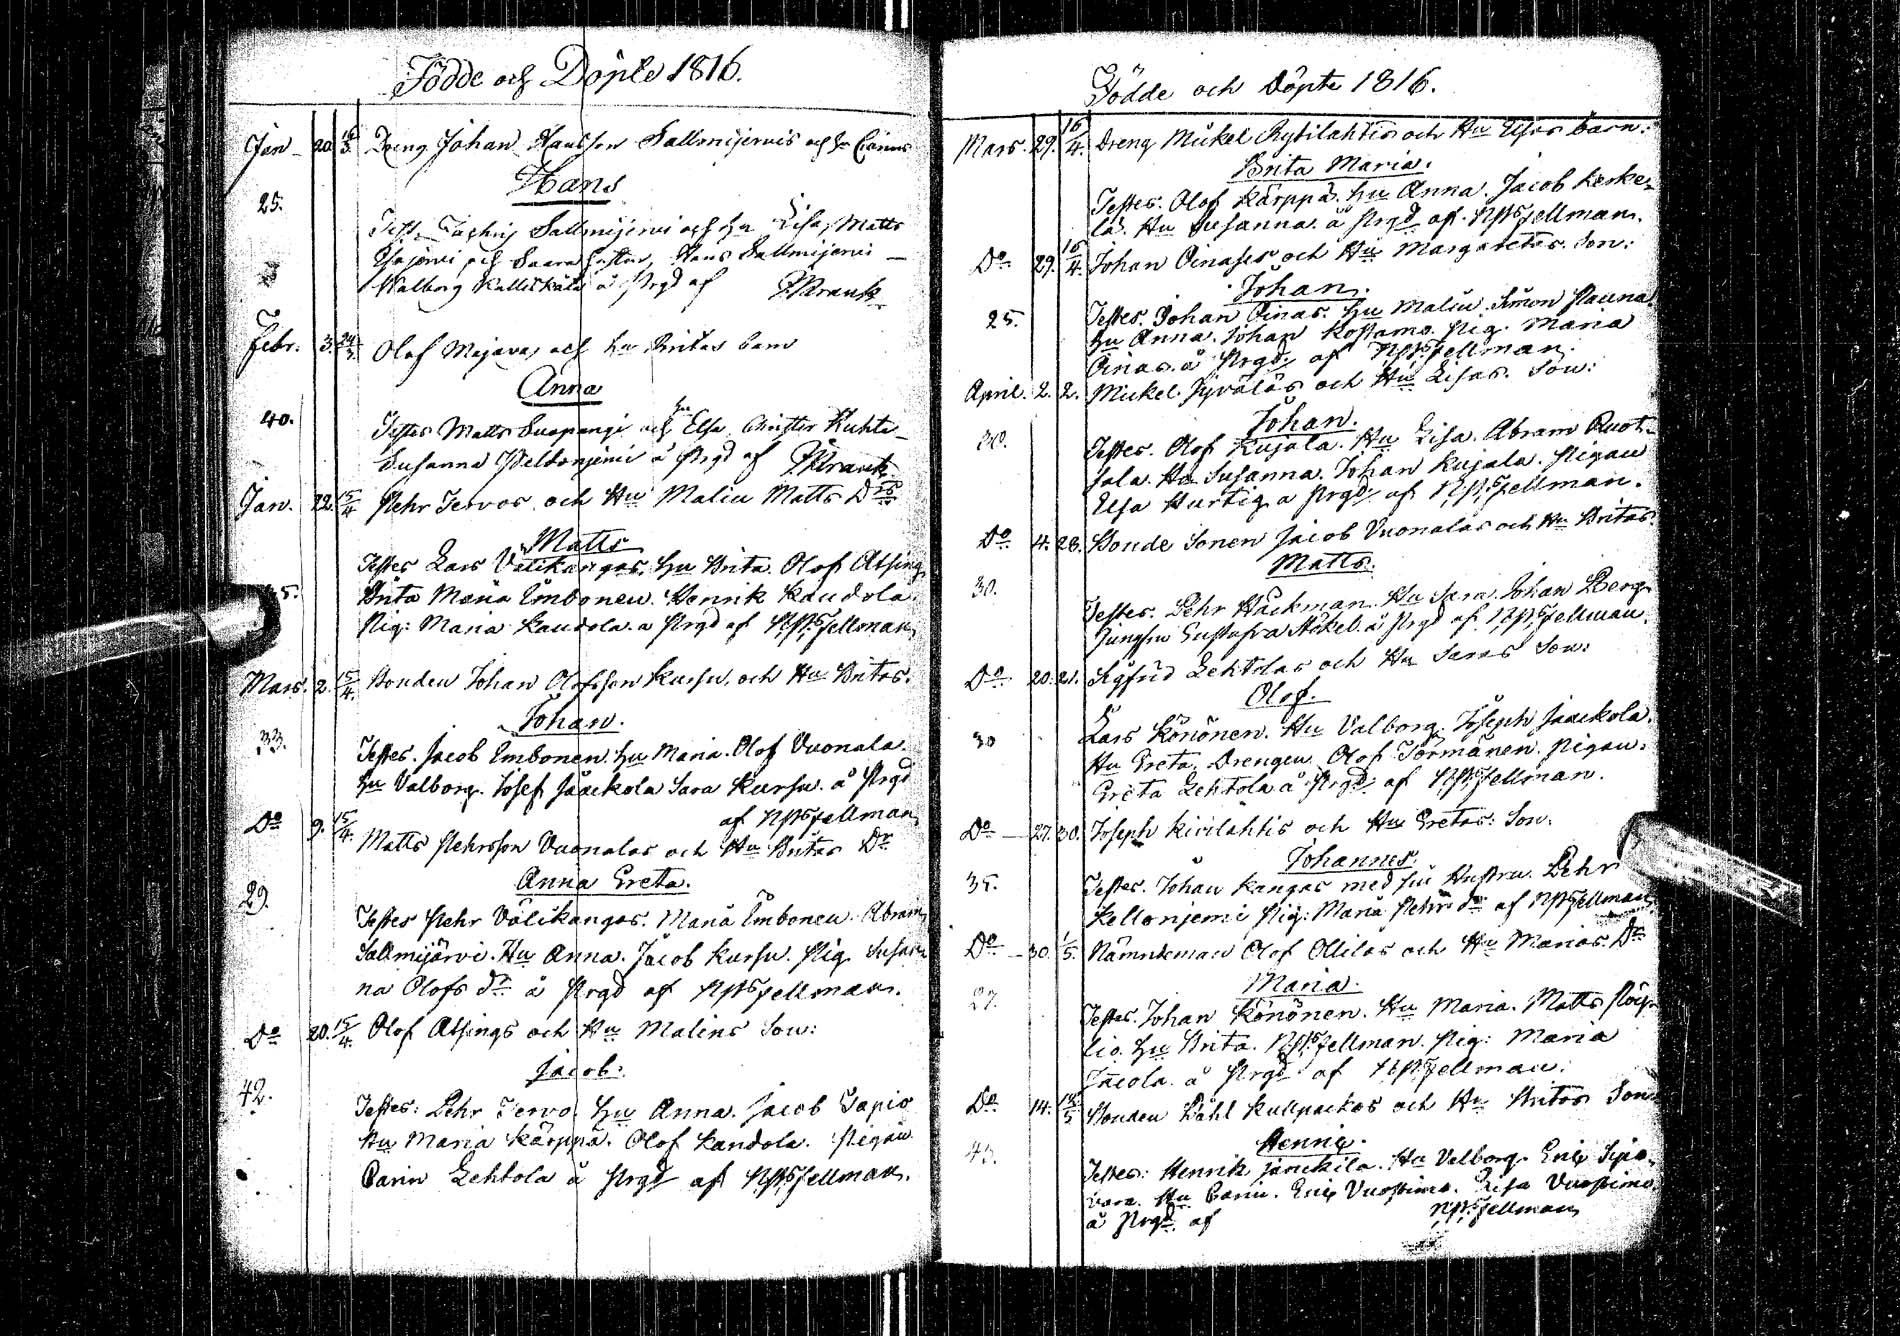 Födde och Döpte 1816.
Jan 20. 16/3. Dreng Johan Hansson Sallmijervis och hu Carins
Hans
25.
Test. Zachris Sallmijervi och hu Lisa, Matts
och Saara hustru, Hans Sallmijervi
Walborg å Prgd af
Febr. 3. 24/3. Olof Majavas och hu Britas barn
Anna
40.
Testes Matts Suopangi och hu Elsa Christer
Susanna å Prgd af
Jan. 22. 15/4 Pehr Tervos och Hu Malin Matts Dr
Matts
Testes Lars Välikangas. hu Brita. Olof Atsing
Brita Maria Imbonen. Henrik Kandola.
35.
Pig: Maria Kandola. a Prgd af Fellman
Mars. 2. 15/4. Bonden Johan Olofsson Kursu och Hu Britas.
Johan.
33.
Testes. Jacob Imbonen. hu Maria. Olof Vuonala.
hu Valborg. Josef Jääskola Sara Kursu. å Prgd
af Fellman
Do 9. 15/4. Matts Pehrsson Vuonalas och Hu Britas Dr
Anna Greta.
29.
Testes Pehr Välikangas. Maria Imbonen. Abram
Sallmijärvi. Hu Anna. Jacob Kursu. Pig. Susan
na Olofs dr å Prgd af Fellman.
Do 20. 15/4. Olof Atsings och Hu Malins Son:
Jacob:
42.
Testes: Pehr Tervo. hu Anna. Jacob Tapio
Hu Maria Kärppä. Olof Kandola. Pigan
Carin Lehtola å Prgd af Fellman.
Födde och Döpte 1816.
Mars. 29. 16/4. Dreng Mickel Kytilahtis och Hu Elsas barn:
Brita Maria.
Testes. Olof Kärppä. hu Anna. Jacob Keske-
lä. Hu Susanna. å Prgd af Fellman.
Do 29. 16/4. Johan Oinases och Hu Margaretas. Son:
Johan.
25.
Testes. Johan Oinas. hu Malin. Simon
hu Anna. Johan Kostamo. Pig. Maria
Oinas. å Prgd af Fellman.
April. 2. 2. Mickel Jyväläs och Hu Lisas. Son:
Johan.
Testes. Olof Kujala. Hu Lisa. Abram Ruot-
sala. Hu Susanna. Johan Kujala. Pigan
Elsa Hurtig a Prgd af Fellman.
Do 4. 28. Bonde Sonen Jacob Vuonalas och Hu Britas.
Matts.
30.
Testes. Pehr Häckman. Hu Sara. Johan Berg.
Jungfru Gustafva å Prgd af Fellman.
Do 20. 21. Sigfrid Lehtolas och Hu Saras Son:
Olof.
30
Lars Könönen. Hu Valborg. Joseph Jääskola.
Hu Greta. Drengen Olof Tormänen. Pigan.
Greta Lehtola å Prgd af Fellman.
Do 27. 30. Joseph Kivilahtis och Hu Gretas: Son.
Johannes.
35.
Testes. Johan Kangas med sin Hustru. Pehr
Kellonjemi Pig: Maria Pehrs dr af Fellman
Do 30. 1/5. Nämndeman Olof Ollilas och Hu Marias. Dr
Maria.
27.
Testes. Johan Könönen. Hu Maria. Matts
lio. hu Brita. Fellman. Pig: Maria
å Prgd af Fellman.
Do 14. 18/5 Bonden Påhl och Hu Britas Son
Henric.
43.
Testes: Henrik. Hu Valborg. Eric
vara. Hu Carin. Eric Vuostimo. Lisa Vuostimo.
å Prgd af Fellman